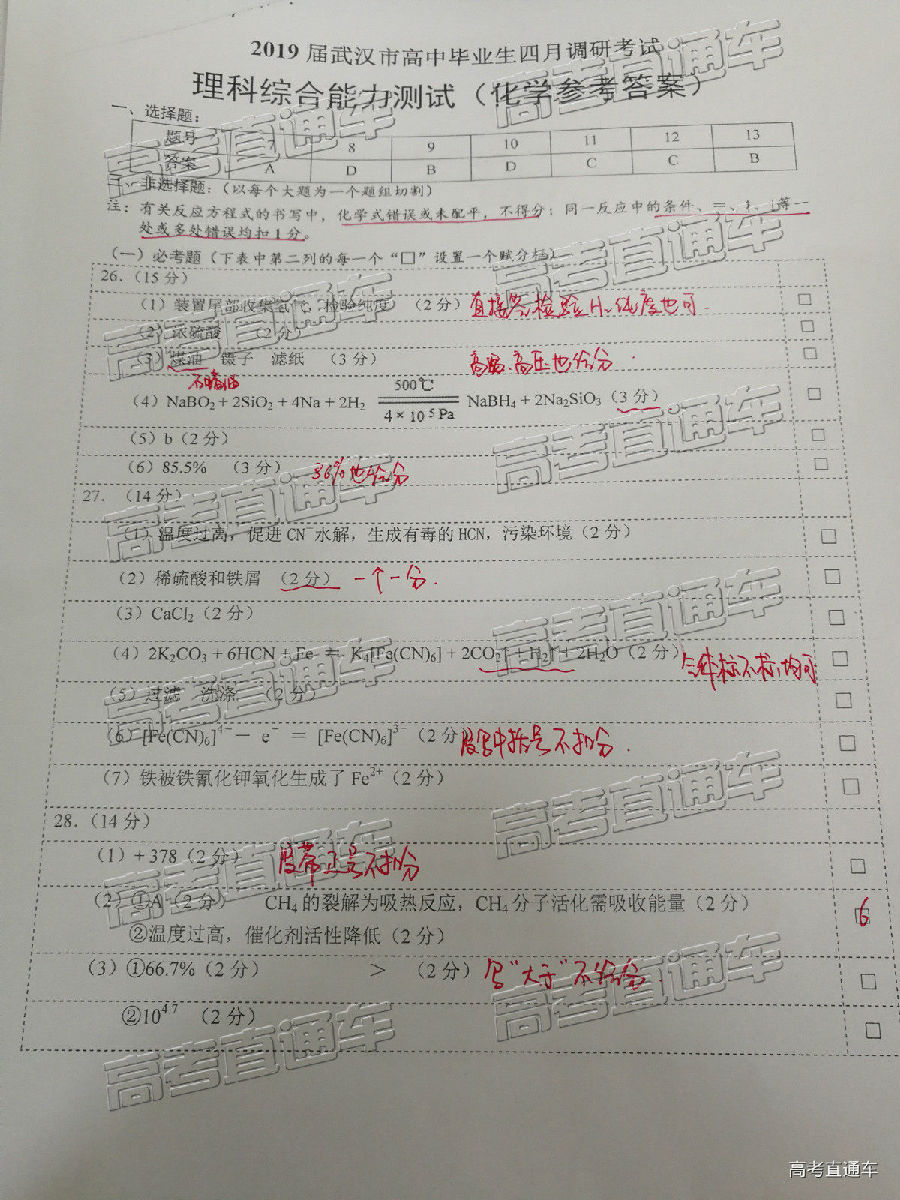 2019 届武汉市高中毕业生四月调研考试
理科综合能力测试（化学参考答案）
一、选择题：
题号 7 8 9 10 11 12 13
答案 A D B D C C B
二、非选择题：（以每个大题为一个题组切割）
注：有关反应方程式的书写中，化学式错误或未配平，不得分；同一反应中的条件、═、↑、↓等一
处或多处错误均扣 1 分。
（一）必考题（下表中第二列的每一个“□”设置一个赋分栏）
26.（15 分）
（1）装置尾部收集氢气，检验纯度 （2 分） 直接答检验H₂纯度也可. □
（2）浓硫酸 （2 分） □
（3）煤油 镊子 滤纸 （3 分） 高温.高压也给分. □
不唯油
（4）NaBO₂ + 2SiO₂ + 4Na + 2H₂ ═ 500℃ 4×10⁵Pa NaBH₄ + 2Na₂SiO₃（3 分） □
（5）b（2 分） □
（6）85.5% （3 分） 86%也给分 □
27.（14 分）
（1）温度过高，促进 CN⁻水解，生成有毒的 HCN，污染环境（2 分） □
（2）稀硫酸和铁屑 （2 分） 一个一分. □
（3）CaCl₂（2 分） □
（4）2K₂CO₃ + 6HCN + Fe ═ K₄[Fe(CN)₆] + 2CO₂↑ + H₂↑ + 2H₂O（2 分） 气体标不标↑均可 □
（5）过滤 洗涤 （2 分） □
（6）[Fe(CN)₆]⁴⁻ － e⁻ = [Fe(CN)₆]³⁻ （2 分） 没写中括号不扣分. □
（7）铁被铁氰化钾氧化生成了 Fe²⁺（2 分） □
28.（14 分）
（1）+ 378（2 分） 没带正号不扣分 □
（2）①A（2 分） CH₄ 的裂解为吸热反应，CH₄ 分子活化需吸收能量（2 分） □ 6
②温度过高，催化剂活性降低（2 分）
（3）①66.7%（2 分） > （2 分） 写“大于”不给分 □
②10⁴·⁷ （2 分） □
高考直通车